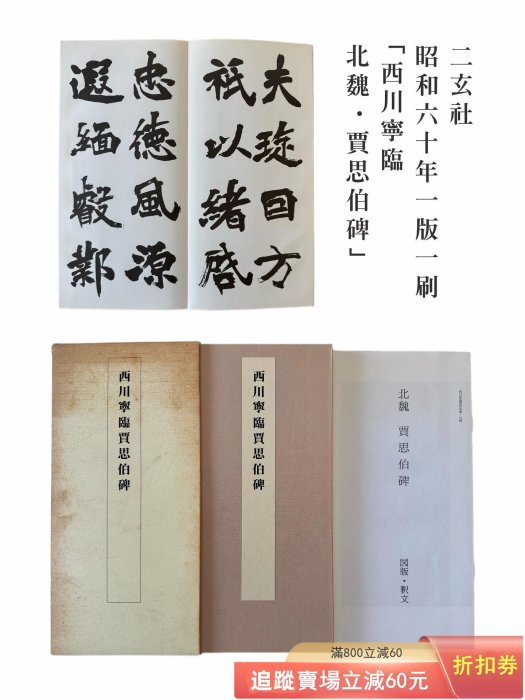 二玄社
昭和六十年一版一刷
「西川寧臨
北魏・賈思伯碑」
夫琁回方
祇以緒啓
忠德風源
遐緬
西川寧臨賈思伯碑
西川寧臨賈思伯碑
北魏 賈思伯碑
図版・釈文
滿800立減60
追蹤賣場立減60元
折扣券